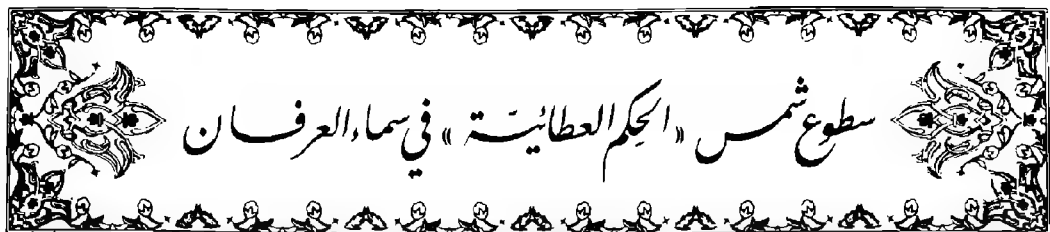 سطوع شمس « الحِكم العطائيّة » في سماء العرفان